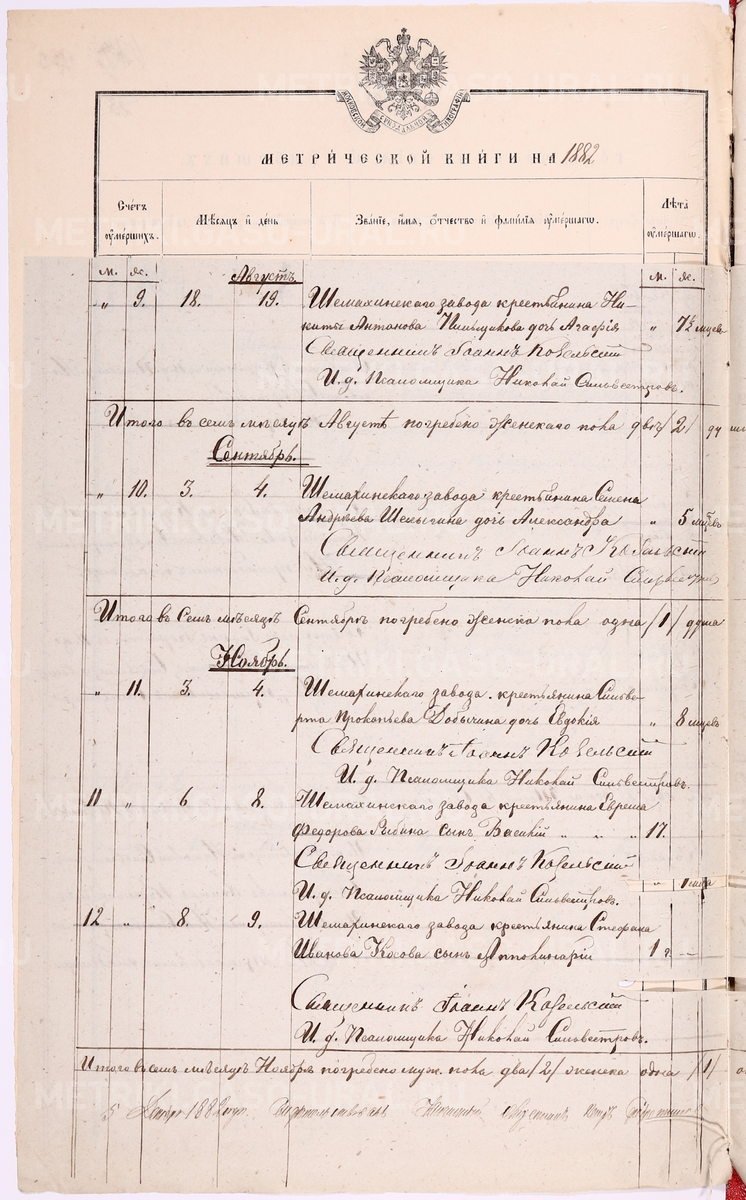 МЕТРИ́ЧЕСКОЙ КНИ́ГИ НА 1882
Сче́тъ ᲂу҆ме́ршихъ.
Мѣ́сяцъ и҆ де́нь
Зва́нїе, и҆́мя, ѻ҆́тчество и҆ фами́лїя ᲂу҆ме́ршагѡ.
Лѣ́та ᲂу҆ме́ршагѡ.
м. ж. Августъ м. ж.
„ 9. 18. 19. Шемахинскаго завода крестьянина Ни-
киты Антонова Пильщикова дочь Агафія „ 7½ мцевъ
Священникъ Іоаннъ Ковельскій
И. д. Псаломщика Николай Сильвестровъ.
Итого въ семъ мѣсяцѣ Августѣ погребено женскаго пола двѣ /2/ ду
Сентябрь.
„ 10. 3. 4. Шемахинскаго завода крестьянина Семена
Андреева дочь Александра „ 5 мцевъ
Священникъ Іоаннъ Ковельскій
И. д. Псаломщика Николай
Итого въ семъ мѣсяцѣ Сентябрѣ погребено женска пола одна /1/ душа
Ноябрь.
„ 11. 3. 4. Шемахинскаго завода крестьянина Сильве-
рта Прокопьева Добычина дочь Евдокія „ 8 мцевъ
Священникъ Іоаннъ Ковельскій
И. д. Псаломщика Николай Сильвестровъ.
11 „ 6 8. Шемахинскаго завода крестьянина Ефрема
Федорова Рыбина сынъ Василій „ „ „ 17.
Священникъ Іоаннъ Ковельскій
И. д. Псаломщика Николай Сильвестровъ.
12 „ 8. 9. Шемахинскаго завода крестьянина Стефана
Иванова Косова сынъ Апполинарій 1 г. —
Священникъ Іоаннъ Ковельскій
И. д. Псаломщика Николай Сильвестровъ.
Итого въ семъ мѣсяцѣ Ноябрѣ погребено муж. пола два /2/ женска одна /1/
5 1882